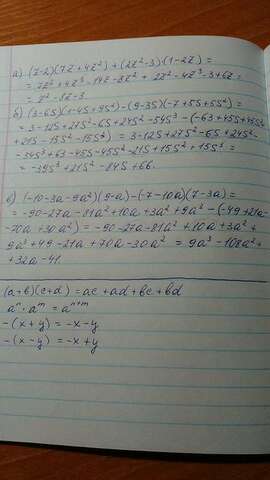 а) (z-2)(7z+4z²)+(2z²-3)(1-2z) =
= 7z²+4z³-14z-8z²+2z²-4z³-3+6z =
= z²-8z-3.
б) (3-6S)(1-4S+9S²)-(9-3S)(-7+5S+5S²) =
= 3-12S+27S²-6S+24S²-54S³-(-63+45S+45S²
+21S-15S²-15S³) = 3-12S+27S²-6S+24S²-
-54S³+63-45S-45S²-21S+15S²+15S³ =
= -39S³+21S²-84S+66.
в) (-10-3a-9a²)(9-a)-(-7-10a)(7-3a) =
= -90-27a-81a²+10a+3a²+9a³-(-49+21a-
-70a+30a²) = -90-27a-81a²+10a+3a²+
9a³+49-21a+70a-30a² = 9a³-108a²+
+32a-41.
(a+b)(c+d) = ac+ad+bc+bd
aⁿ·aᵐ = aⁿ⁺ᵐ
-(x+y) = -x-y
-(x-y) = -x+y